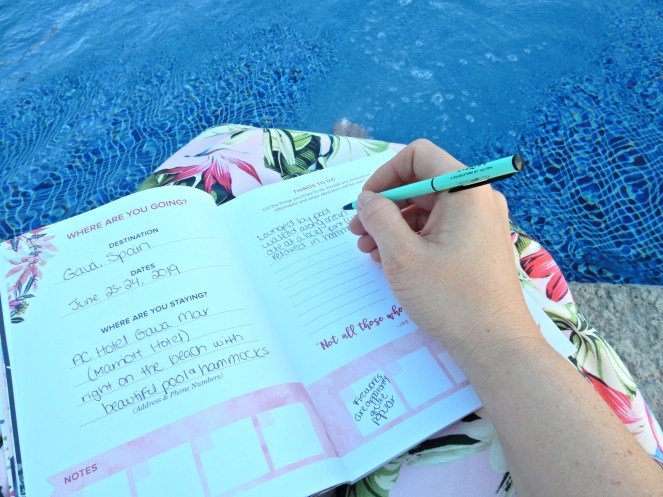 WHERE ARE YOU GOING?
DESTINATION
Gava, Spain
DATES
June 23-24, 2019
WHERE ARE YOU STAYING?
AC Hotel Gava Mar
(Marriott Hotel)
right on the beach with
beautiful pool & hammocks
(Address & Phone Numbers)
NOTES
THINGS TO DO
Lounged by pool
walked along
ate at a
relaxed in
"Not all those who
Fireworks
are apparently
quite
popular